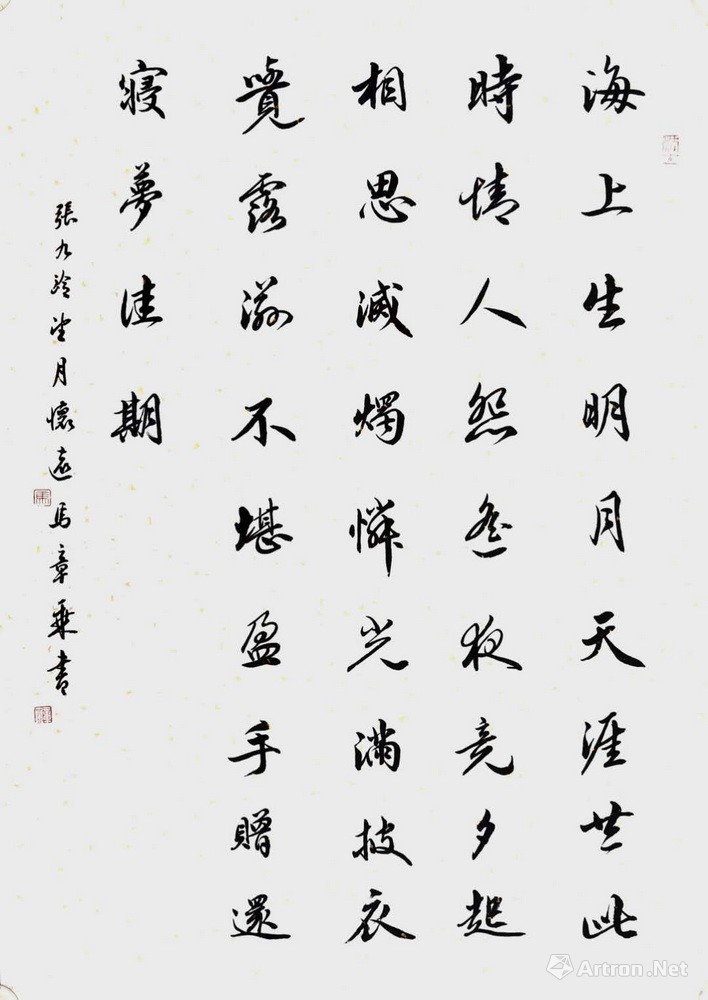 海上生明月天涯共此
時情人怨遙夜竟夕起
相思滅燭憐光滿披衣
覺露滋不堪盈手贈還
寢夢佳期
張九齡望月懷遠馬章乘書
Artron.Net